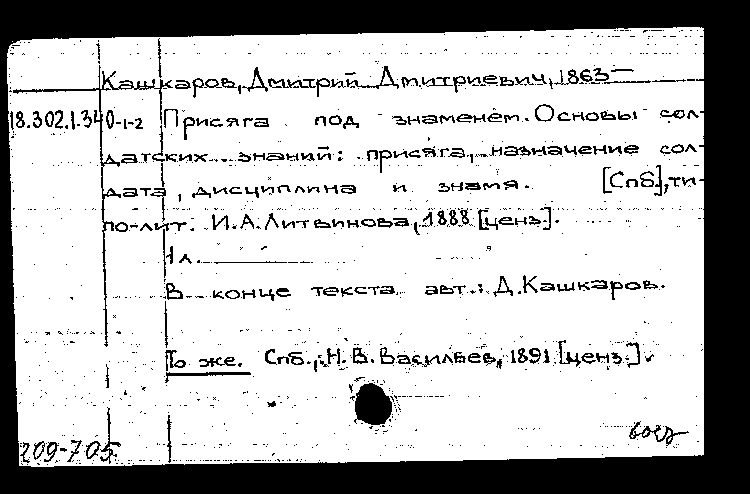 Кашкаров, Дмитрий Дмитриевич, 1863–
18.302.1.340-1-2 Присяга под знаменем. Основы сол-
датских знаний: присяга, назначение сол-
дата, дисциплина и знамя. [Спб.], ти-
по-лит. И.А.Литвинова, 1888 [ценз.].
1л.
В конце текста авт.: Д.Кашкаров.
То же. Спб., Н.В.Васильев, 1891 [ценз.].
209-705.